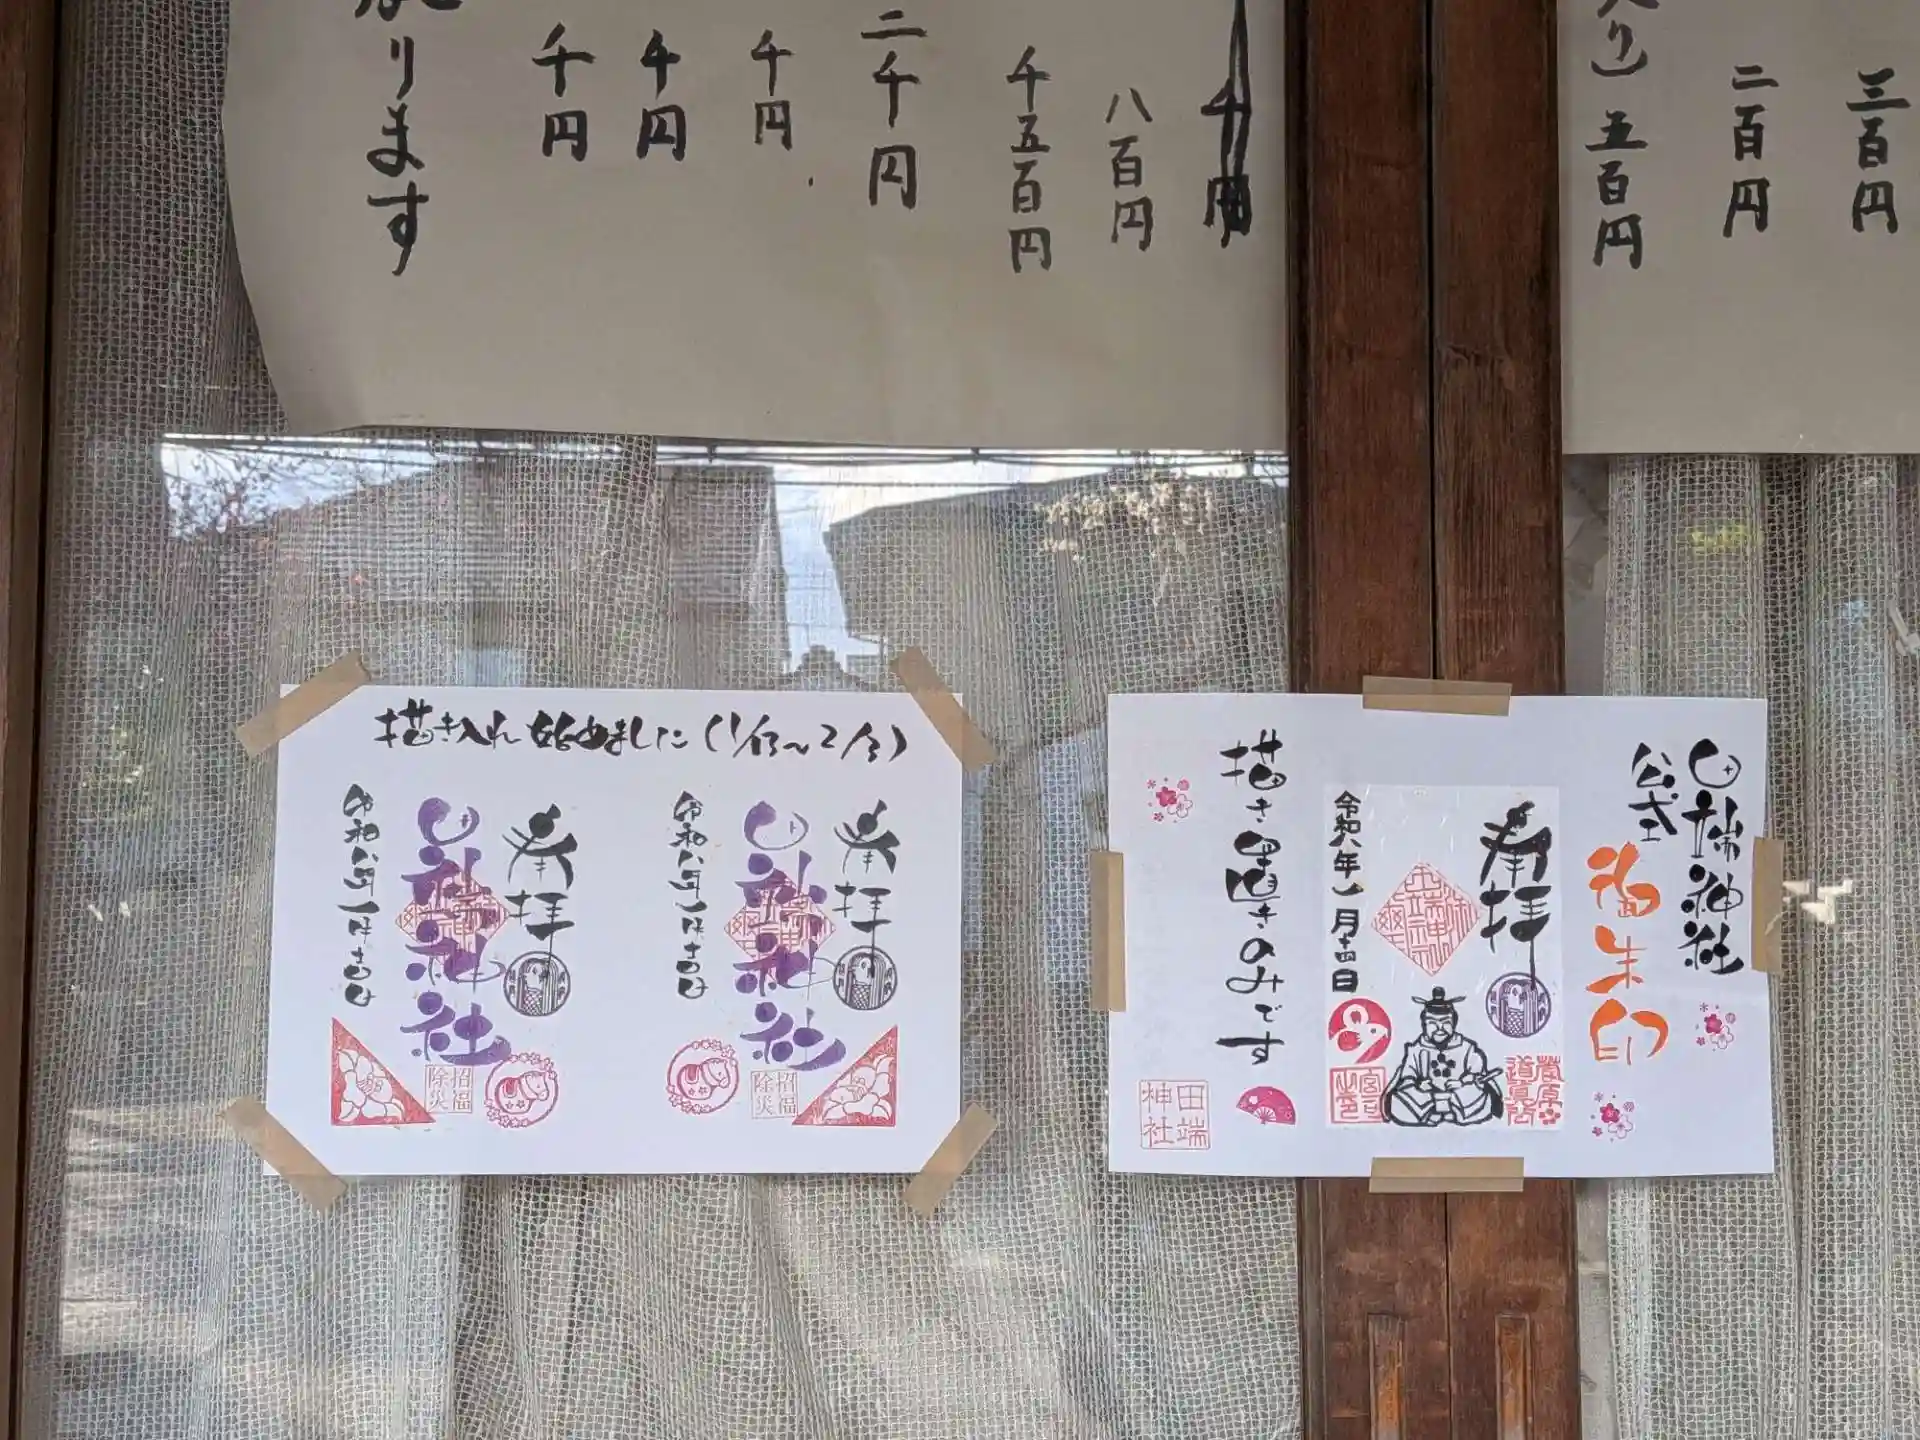 三百円
二百円
入り）五百円
千円
八百円
千五百円
二千円
千円
千円
千円
ります
描き入れ始めました（1/13〜2/3）
奉拝
田端神社
令和八年一月十四日
招福
除災
奉拝
田端神社
令和八年一月十四日
招福
除災
田端神社
公式
御朱印
奉拝
令和八年一月十四日
菅原
道真公
描き置きのみです
田端
神社